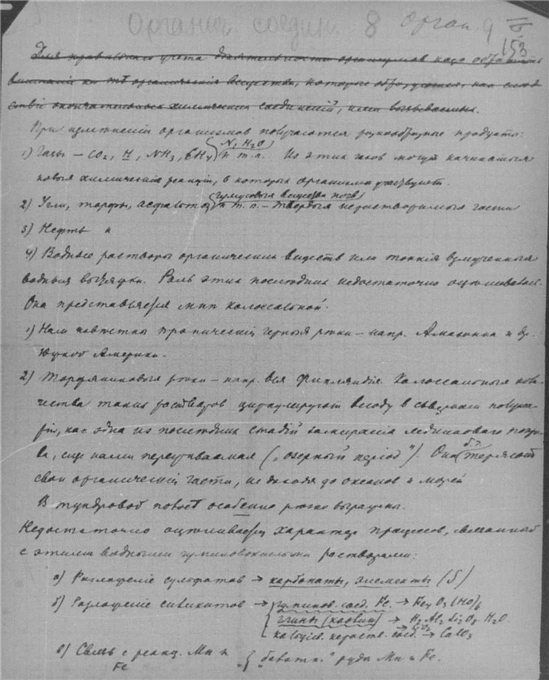 Органич. соедин. 8 Орган. 9
153
Для правильного учета деятельности организмов надо обратить
внимание на те органические вещества, которые образуются, как
окончательных химических соединений, ими вызываемых.
При изменении организмов получаются разнообразные продукты:
1) Газы – CO₂, H, NH₃, CH₄ и т.п. Из этих газов могут начинаться
N, H₂O
новые химические реакции, в которых организмы участвуют.
гумусовые вещества почв
2) Угли, торфы, асфальты и т.п. – твердые нерастворимые части
3) Нефть и
4) Водные растворы органических веществ или тонкие взмученные
водные взвеси. Роль этих последних недостаточно оценивалась.
Она представляется мне колоссальной.
1) Нам известны тропические черные реки – напр. Амазонка и др.
Южной Америки.
2) Торфяниковые реки – напр. вся Финляндия. Колоссальные коли-
чества таких растворов циркулируют всюду в северных
как одна из последних стадий замирания ледникового
нами переживаемая („озерный период"). Они теряют
свои органические части, не доходя до океанов и морей
В тундровой особенно резко выражены.
Недостаточно оценивается характер процессов, связанных
с этими водными растворами:
а) Разложение сульфатов → карбонаты, элементы (S)
б) Разложение силикатов → соед. Fe → Fe₂O₃(HO)₆
глины (каолин) → H₂Al₂Si₂O₈ H₂O
соед. → CaCO₃
в) Связь с реакц. Mn и { „болотн." руды Mn и Fe.
Fe